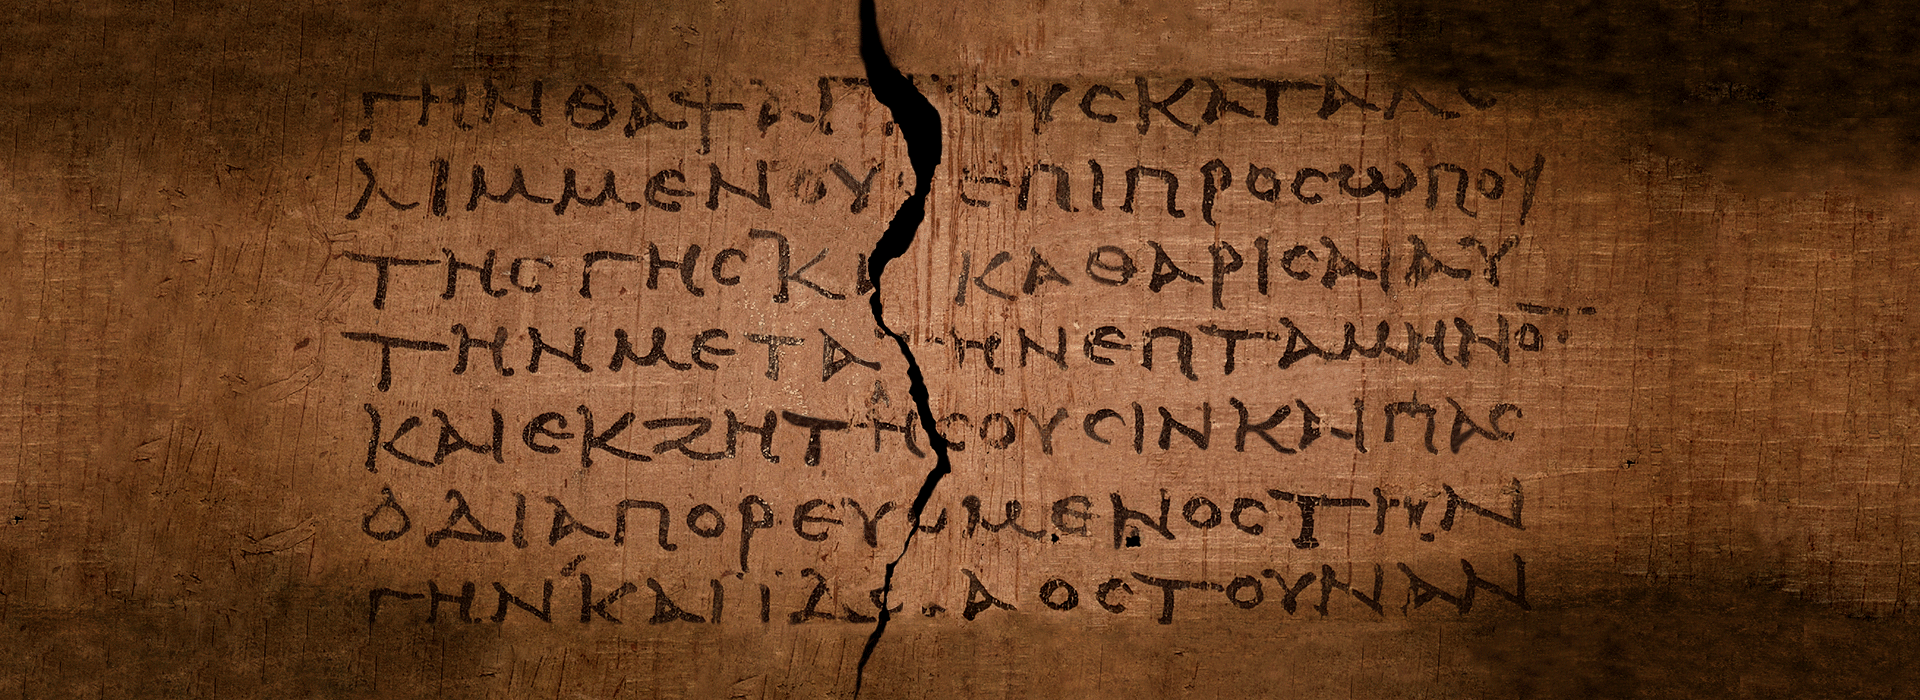 ΓΗΝΘΑΨΑΙΤΟΥΣΚΑΤΑΛΕ
ΛΙΜΜΕΝΟΥΣΕΠΙΠΡΟΣΩΠΟΥ
ΤΗΣΓΗΣΚΙΚΑΘΑΡΙΣΑΙΑΥ
ΤΗΝΜΕΤΑΤΗΝΕΠΤΑΜΗΝΟ̅
ΚΑΙΕΚΖΗΤΗΣΟΥΣΙΝΚΑΙΠΑΣ
ΟΔΙΑΠΟΡΕΥΟΜΕΝΟΣΤΗΝ
ΓΗΝΚΑΙΙΔΩΝ ΟΣΤΟΥΝΑΝ